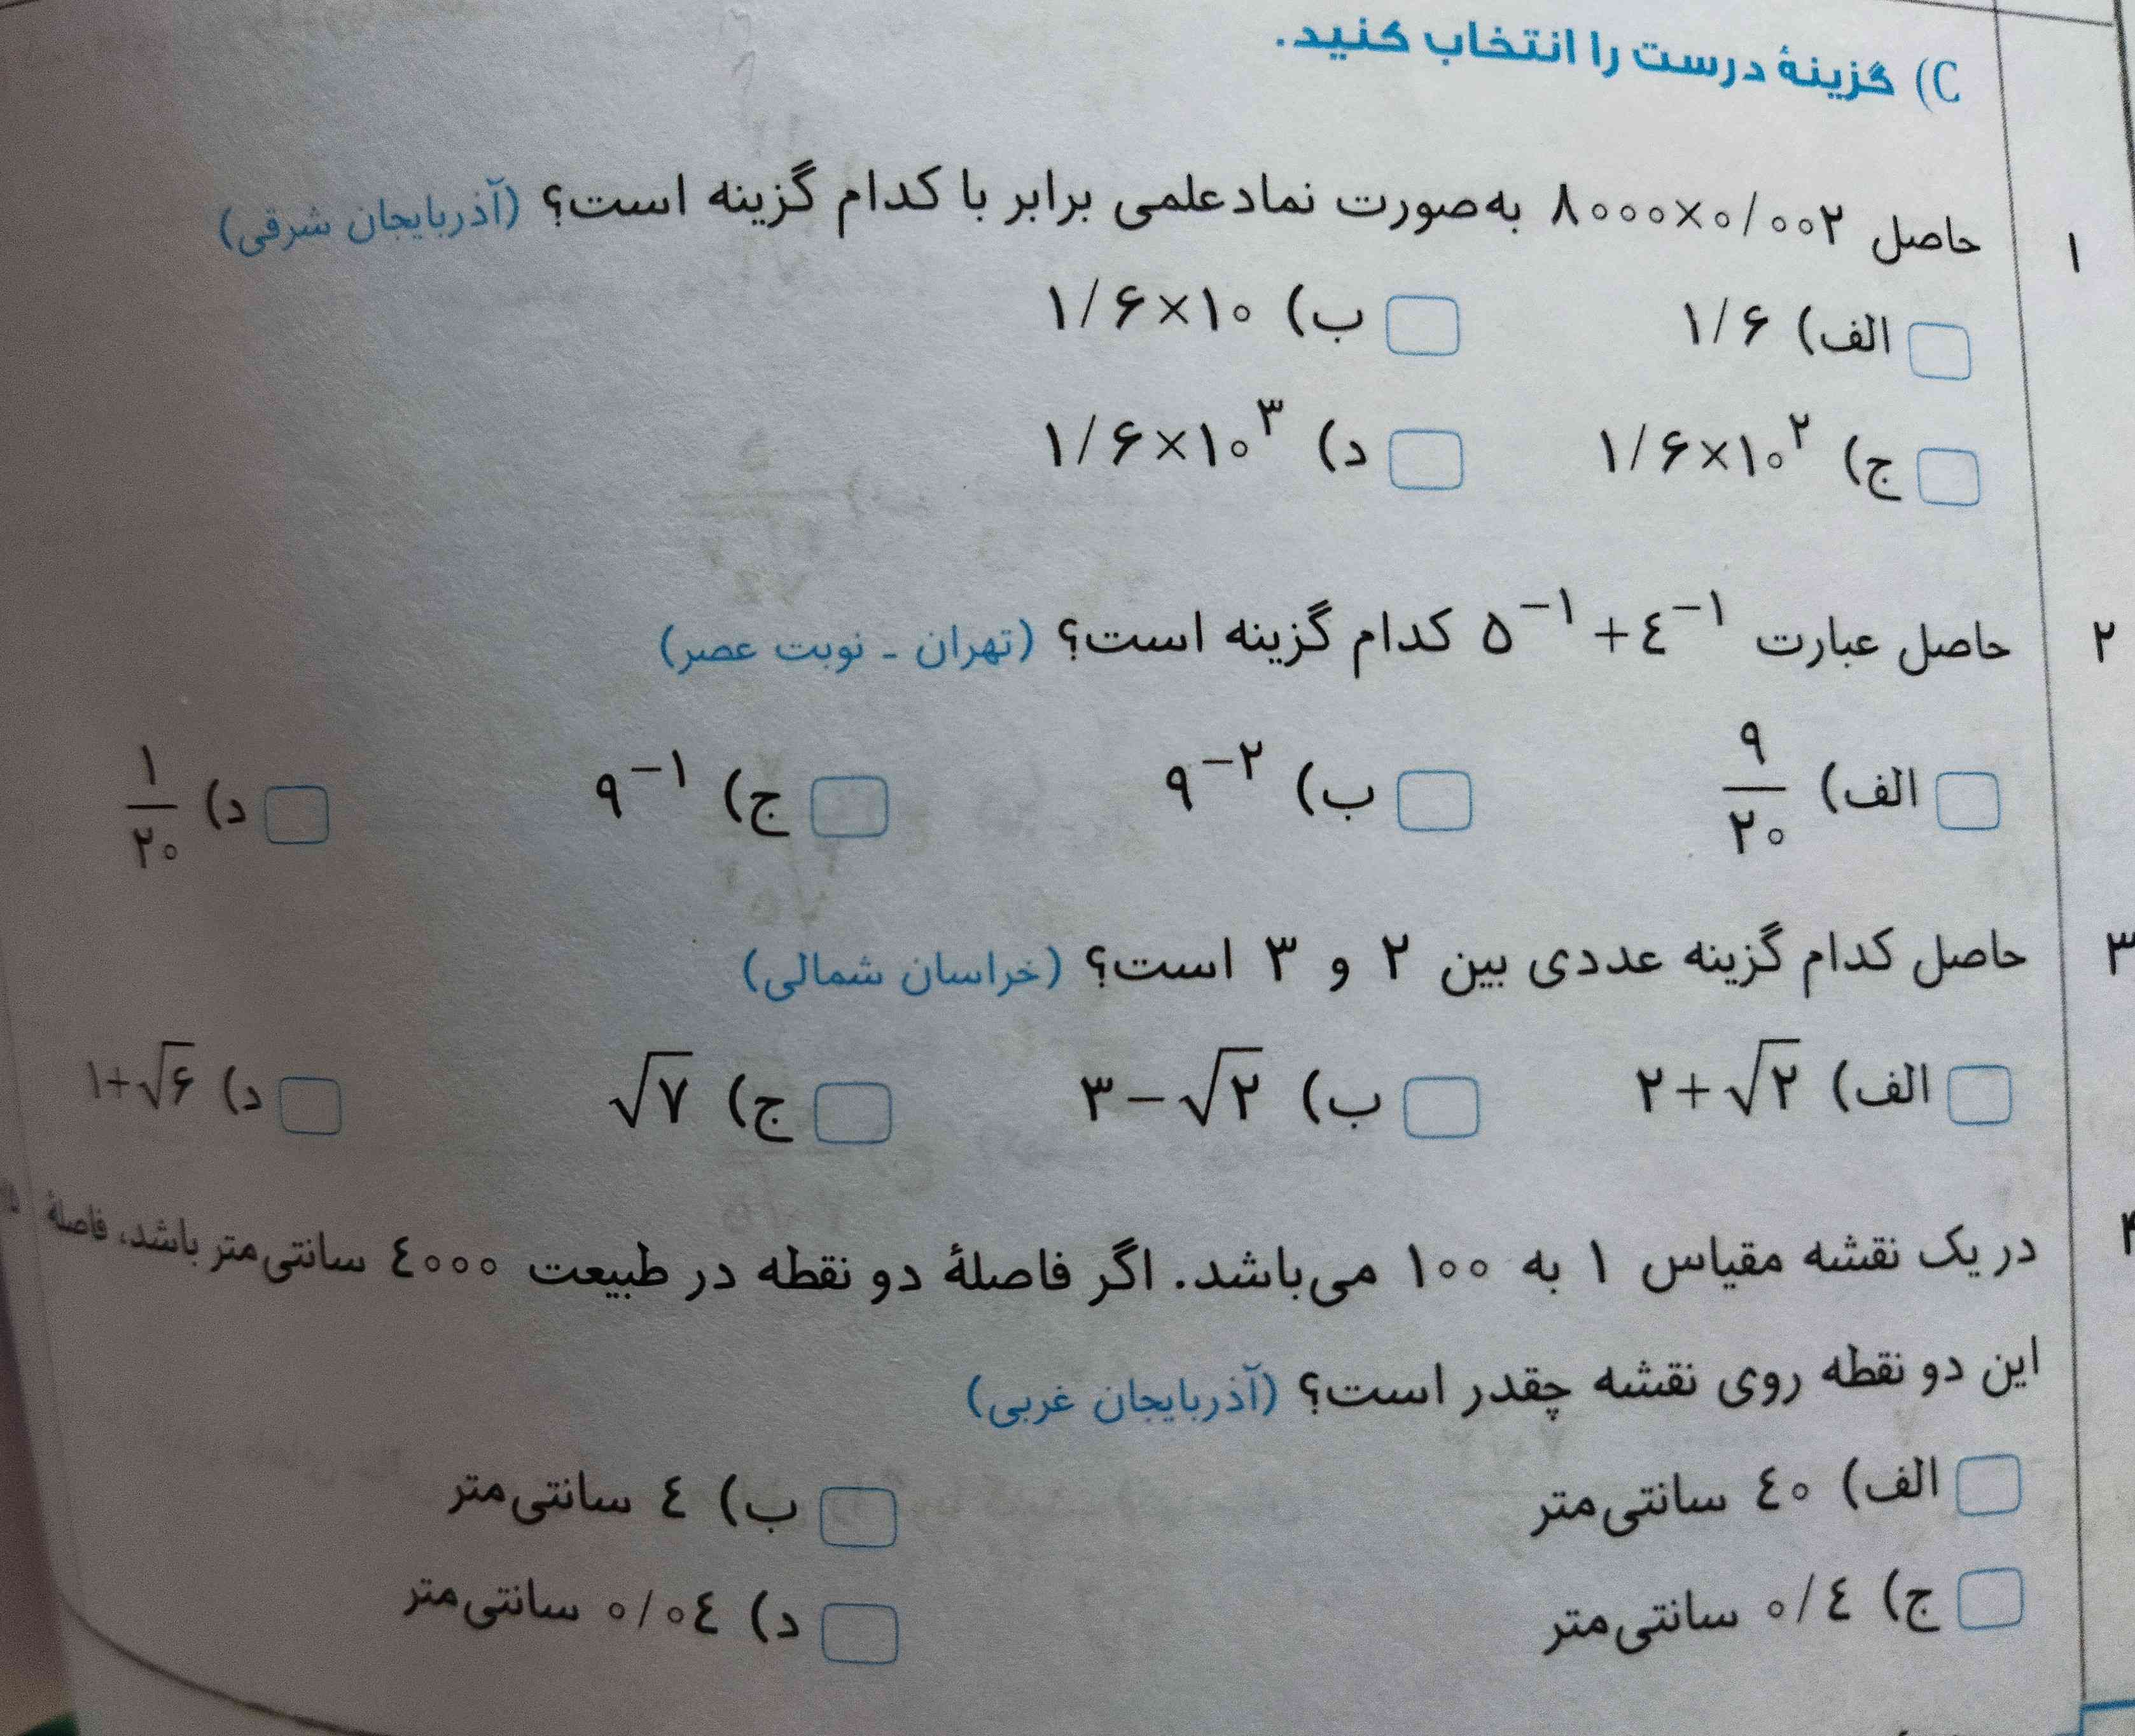 C) گزینهٔ درست را انتخاب کنید.
۱ حاصل ۸۰۰۰×۰/۰۰۲ به‌صورت نماد علمی برابر با کدام گزینه است؟ (آذربایجان شرقی)
الف) ۱/۶ ب) ۱/۶×۱۰
ج) ۱/۶×۱۰^۲ د) ۱/۶×۱۰^۳
۲ حاصل عبارت ۵^{-۱}+۴^{-۱} کدام گزینه است؟ (تهران - نوبت عصر)
الف) ۹/۲۰ ب) ۹^{-۲} ج) ۹^{-۱} د) ۱/۲۰
۳ حاصل کدام گزینه عددی بین ۲ و ۳ است؟ (خراسان شمالی)
الف) ۲+√۲ ب) ۳-√۲ ج) √۷ د) ۱+√۶
۴ در یک نقشه مقیاس ۱ به ۱۰۰ می‌باشد. اگر فاصلهٔ دو نقطه در طبیعت ۴۰۰۰ سانتی‌متر باشد، فاصلهٔ
این دو نقطه روی نقشه چقدر است؟ (آذربایجان غربی)
الف) ۴۰ سانتی‌متر ب) ۴ سانتی‌متر
ج) ۰/۴ سانتی‌متر د) ۰/۰۴ سانتی‌متر